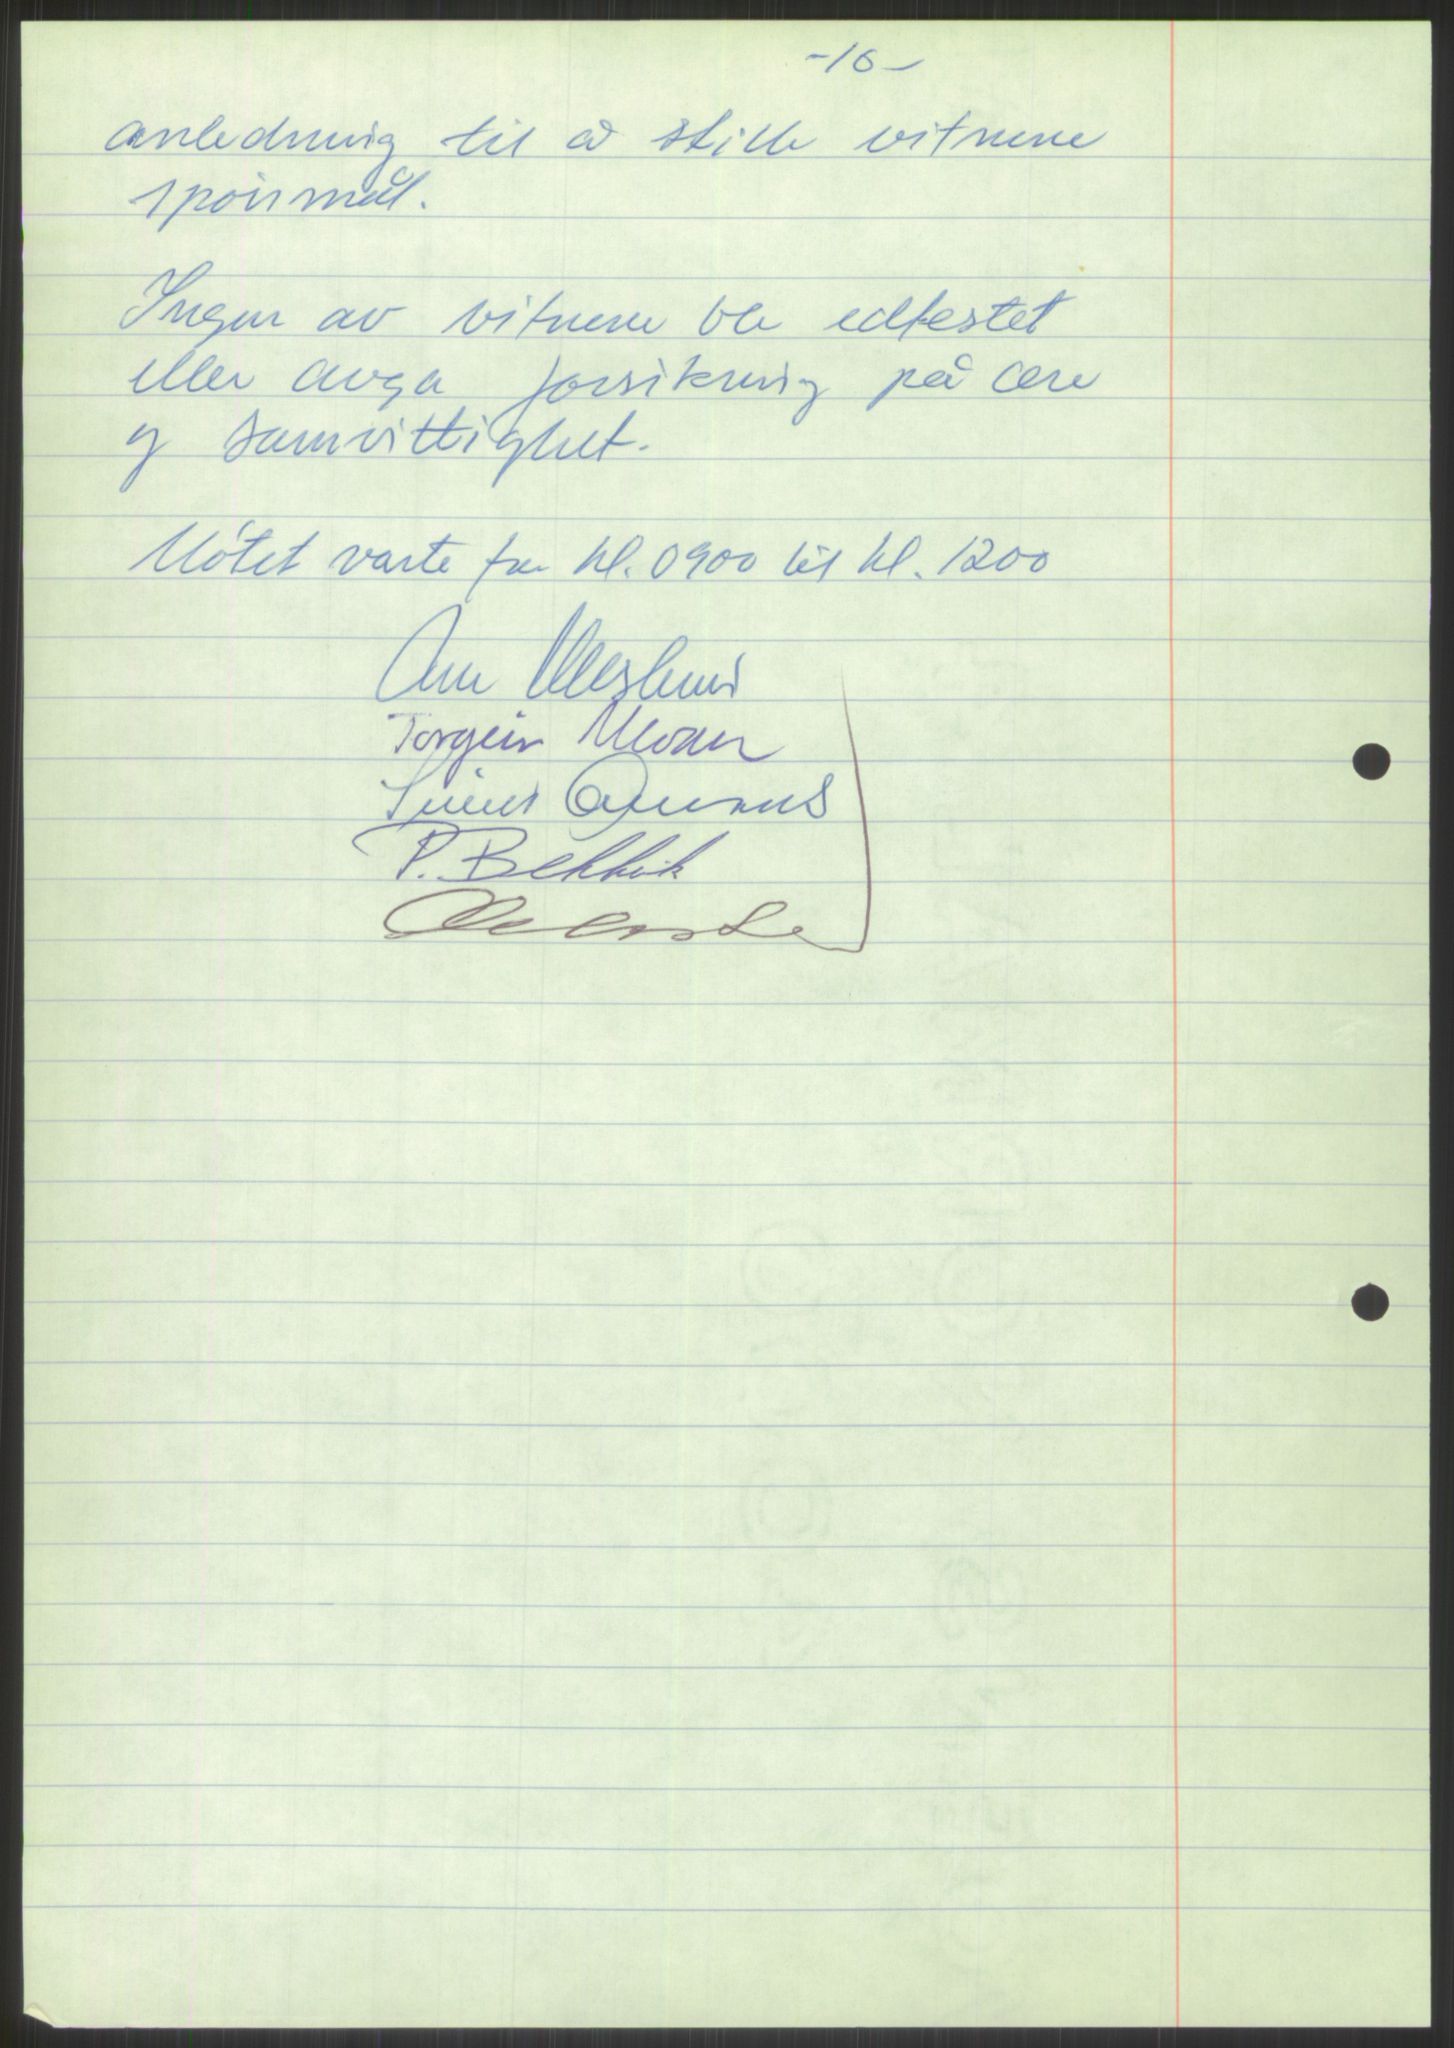 -16-
anledning til å stille vitnene
spørsmål.
Ingen av vitnene ble edfestet
eller avga forsikring på ære
og samvittighet.
Møtet varte fra kl. 0900 til kl. 1200
Torgeir Moan
P. Bekkvik